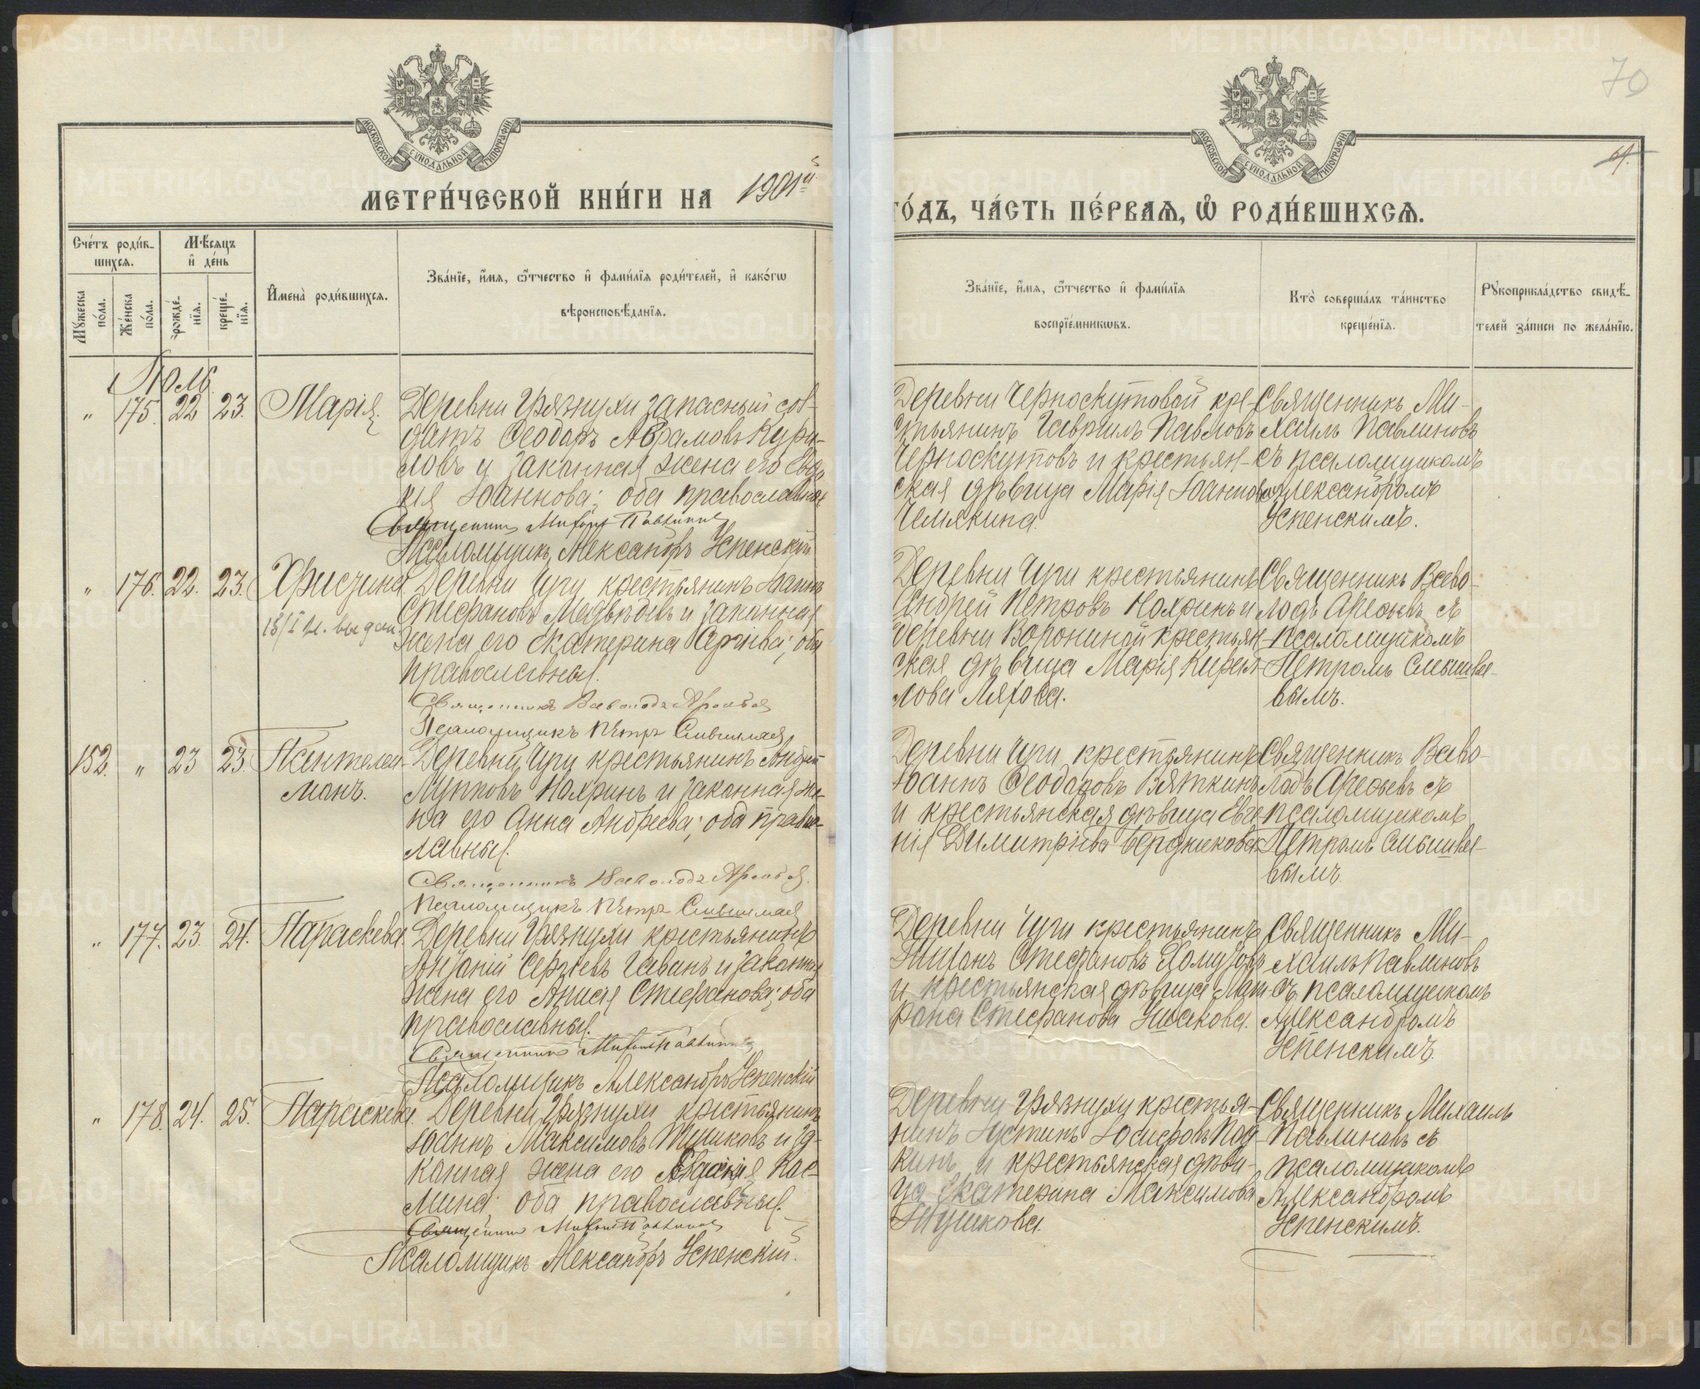 70
4.
МОСКОВСКОЙ СИНОДАЛЬНОЙ ТИПОГРАФИИ
МОСКОВСКОЙ СИНОДАЛЬНОЙ ТИПОГРАФИИ
МЕТРИ́ЧЕСКОЙ КНИ́ГИ НА 1901й
ГО́ДЪ, ЧА́СТЬ ПЕ́РВАѦ, Ѽ РОДИ́ВШИХСѦ.
Сче́тъ роди́в-
шихсѧ.
Мꙋжеска по́ла.
Же́нска по́ла.
Мѣ́сѧцъ
и҆ де́нь
рожде́-
нїѧ.
креще́-
нїѧ.
И҆мена̀ роди́вшихсѧ.
Зва́нїе, и҆́мѧ, ѻ҆́тчество и҆ фами́лїѧ роди́телей, и҆ како́гѡ
вѣроисповѣ́данїѧ.
Зва́нїе, и҆́мѧ, ѻ҆́тчество и҆ фами́лїѧ
воспрїе́мникѡвъ.
Кто̀ соверша́лъ та́инство
креще́нїѧ.
Рꙋкоприкла́дство свидѣ́-
телей за́писи по жела́нїю.
Іюль
" 175. 22 23. Марія
Деревни Грязнухи запасный сол-
датъ Ѳеодоръ Аврамовъ Кури-
ловъ и законная жена его Ев
кія Іоаннова; оба православные
Священникъ Михаилъ Павлиновъ
Псаломщикъ Александръ Успенскій
Деревни Черноскутовой кре-
стьянинъ Гавріилъ Павловъ
Черноскутовъ и крестьян-
ская дѣвица Марія Іоаннова
Чемякина
Священникъ Ми-
хаилъ Павлиновъ
съ псаломщикомъ
Александромъ
Успенскимъ.
" 176. 22. 23. Христина
Деревни Чуги крестьянинъ Іоаннъ
Стефановъ Медвѣдевъ и законная
жена его Екатерина Сергіева; оба
православны.
Священникъ Всеволодъ Арефьев
Псаломщикъ Петръ
Деревни Чуги крестьянинъ
Андрей Петровъ Нохринъ и
деревни Ворониной крестьян-
ская дѣвица Марія Кирил-
лова Ляхова.
Священникъ Всево-
лодъ Арефьевъ съ
псаломщикомъ
Петромъ
вымъ.
152. " 23 23. Пантелеи-
монъ.
Деревни Чуги крестьянинъ Андрей
Лупповъ Нохринъ и законная же-
на его Анна Андреева; оба право-
славны.
Священникъ Всеволодъ Арефьев
Псаломщикъ Петръ
Деревни Чуги крестьянинъ
Іоаннъ Ѳеодоровъ Вяткинъ
и крестьянская дѣвица Евге-
нія Димитріева Бердникова
Священникъ Всево-
лодъ Арефьевъ съ
псаломщикомъ
Петромъ
вымъ.
" 177. 23. 24. Параскева
Деревни Грязнухи крестьянинъ
Антоній Сергіевъ Гаванъ и законная
жена его Анисія Стефанова; оба
православны.
Священникъ Михаилъ Павлиновъ
Псаломщикъ Александръ Успенскій
Деревни Чуги крестьянинъ
Стефановъ
и крестьянская дѣвица Мат-
рона Стефанова Ушакова.
Священникъ Ми-
хаилъ Павлиновъ
съ псаломщикомъ
Александромъ
Успенскимъ.
" 178. 24. 25. Параскева
Деревни Грязнухи крестьянинъ
Іоаннъ Максимовъ Тушковъ и за-
конная жена его Кос-
мина; оба православны.
Священникъ Михаилъ Павлиновъ
Псаломщикъ Александръ Успенскій.
Деревни Грязнухи крестья-
нинъ Іустинъ Іосифовъ
кинъ и крестьянская дѣви-
ца Екатерина Максимова
Тушкова.
Священникъ Михаилъ
Павлиновъ съ
псаломщикомъ
Александромъ
Успенскимъ.
METRIKI.GASO-URAL.RU